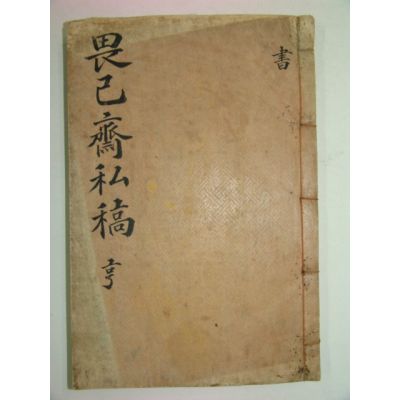 書
畏己齋私稿
亨